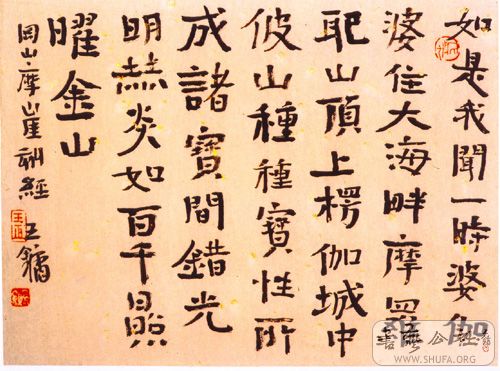 如是我聞一時婆伽
婆住大海畔摩羅
耶山頂上楞伽城中
彼山種種寶性所
成諸寶間錯光
明赫炎如百千日照
曜金山
岡山摩崖刻經 王鏞
WWW.SHUFA.ORG